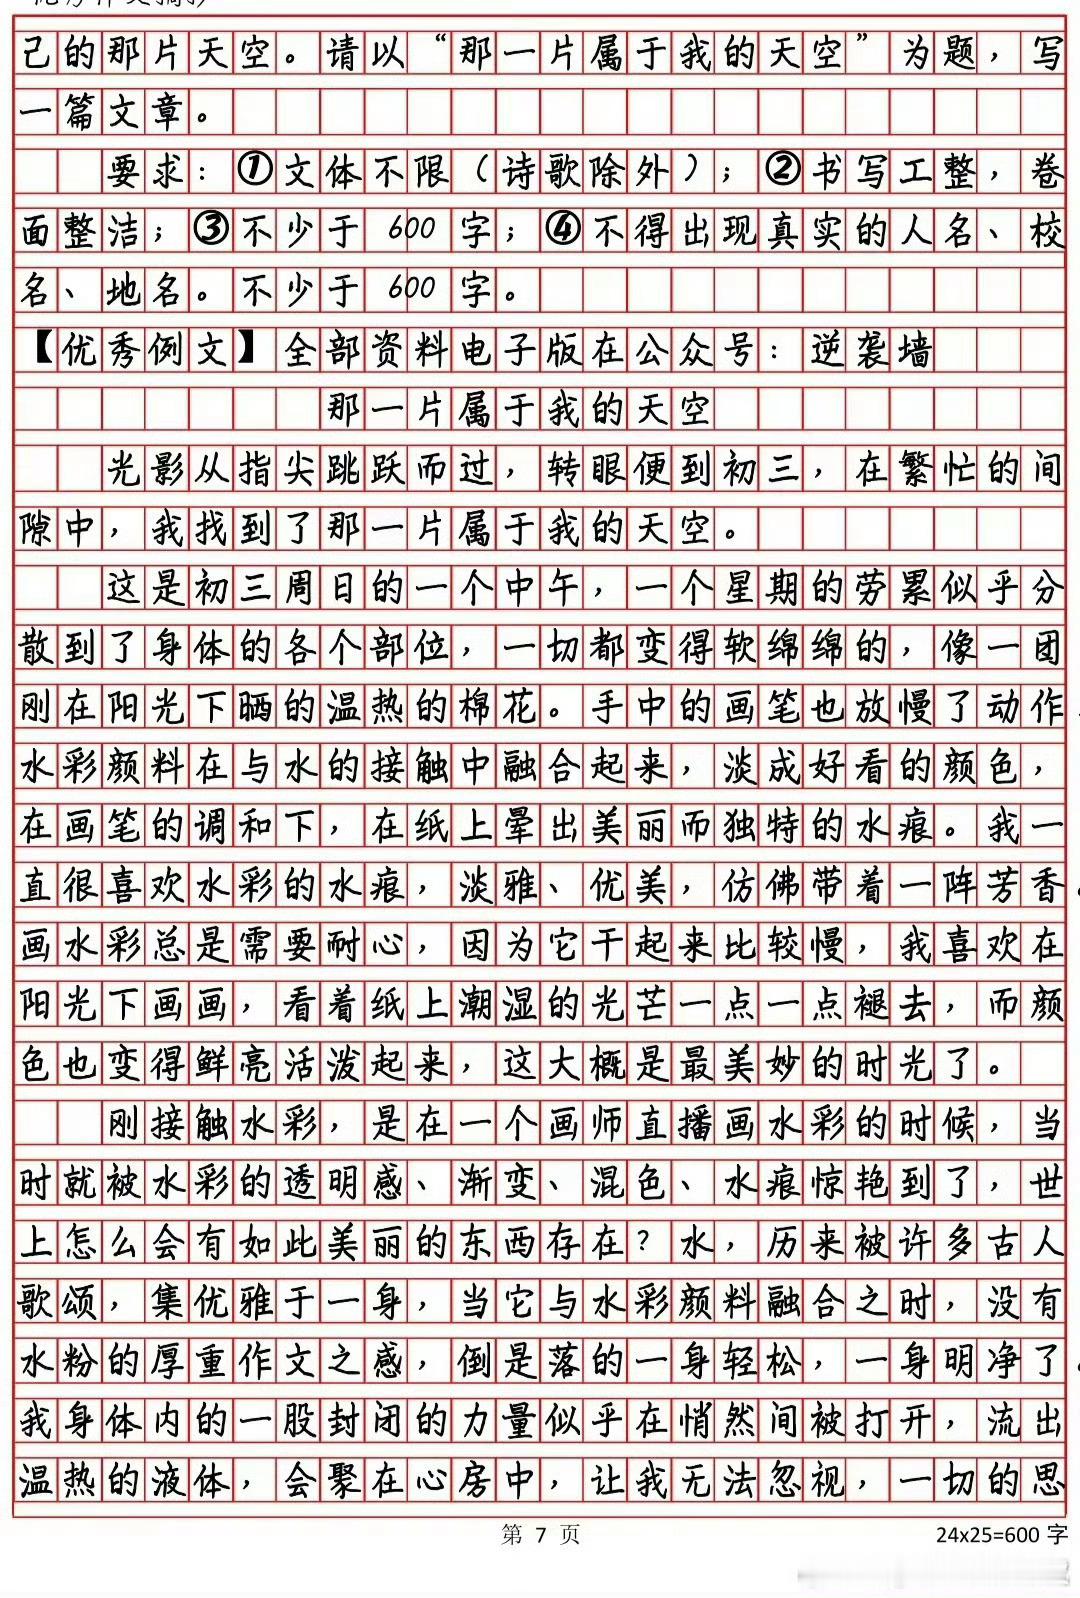 己的那片天空。请以“那一片属于我的天空”为题，写
一篇文章。
要求：①文体不限（诗歌除外）；②书写工整，卷
面整洁；③不少于 600 字；④不得出现真实的人名、校
名、地名。不少于 600 字。
【优秀例文】全部资料电子版在公众号：逆袭墙
那一片属于我的天空
光影从指尖跳跃而过，转眼便到初三，在繁忙的间
隙中，我找到了那一片属于我的天空。
这是初三周日的一个中午，一个星期的劳累似乎分
散到了身体的各个部位，一切都变得软绵绵的，像一团
刚在阳光下晒的温热的棉花。手中的画笔也放慢了动作，
水彩颜料在与水的接触中融合起来，淡成好看的颜色，
在画笔的调和下，在纸上晕出美丽而独特的水痕。我一
直很喜欢水彩的水痕，淡雅、优美，仿佛带着一阵芳香。
画水彩总是需要耐心，因为它干起来比较慢，我喜欢在
阳光下画画，看着纸上潮湿的光芒一点一点褪去，而颜
色也变得鲜亮活泼起来，这大概是最美妙的时光了。
刚接触水彩，是在一个画师直播画水彩的时候，当
时就被水彩的透明感、渐变、混色、水痕惊艳到了，世
上怎么会有如此美丽的东西存在？水，历来被许多古人
歌颂，集优雅于一身，当它与水彩颜料融合之时，没有
水粉的厚重作文之感，倒是落的一身轻松，一身明净了。
我身体内的一股封闭的力量似乎在悄然间被打开，流出
温热的液体，会聚在心房中，让我无法忽视，一切的思
第 7 页
24x25=600 字